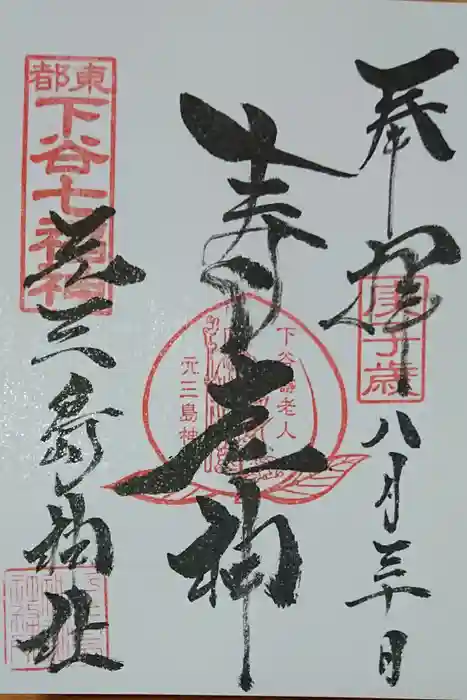 奉拝
庚子歳
八月三十日
寿老神
下谷寿老人
元三島神
東都
下谷七福神
元三島神社